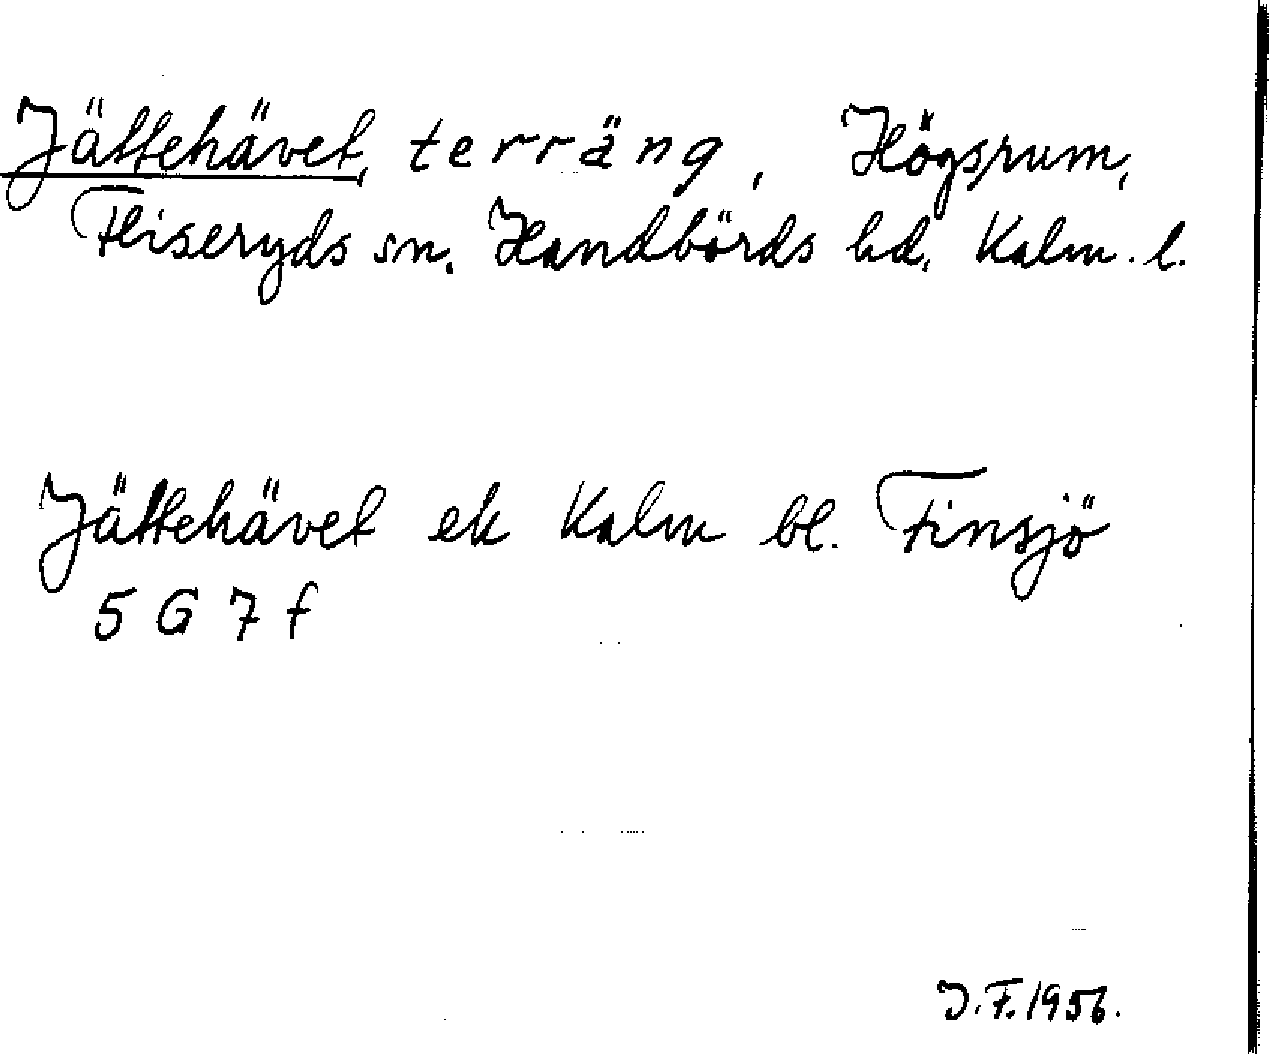 Jättehävet, terräng, Högsrum,
Fliseryds sn. Handbörds hd, Kalm. l.
Jättehävet ek Kalm bl. Finsjö
5 G 7 f
J. F. 1956.